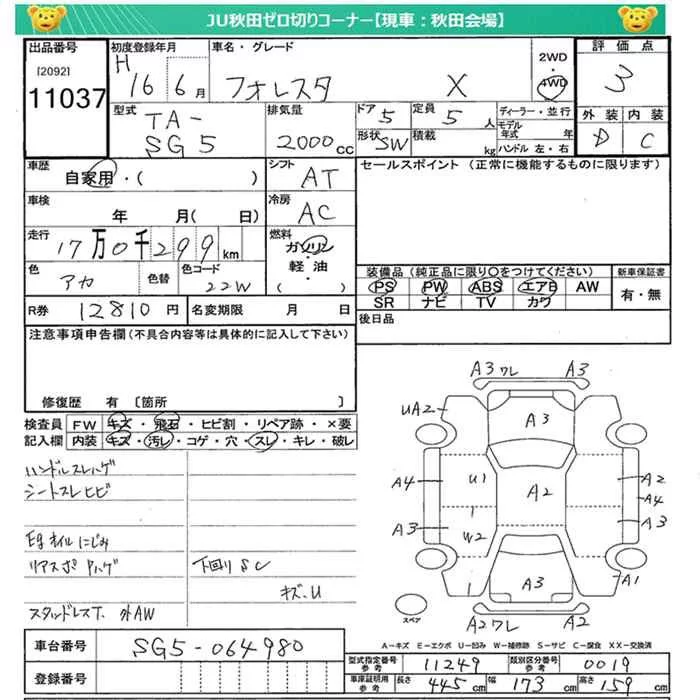 JU秋田ゼロ切りコーナー【現車：秋田会場】
出品番号 初度登録年月 車名・グレード 2WD・4WD 評価点
[2092] 11037 H16年6月 フォレスタ X 3
型式 排気量 ドア 定員 ディーラー・並行 外装 内装
TA- 5 5人 モデル年式 年 D C
SG5 2000cc 形状 SW 積載 kg ハンドル 左・右
車歴 シフト セールスポイント (正常に機能するものに限ります)
自家用・( ) AT
車検 冷房
年 月( 日) AC
走行 燃料
17万0千299km ガソリン・軽油
色 色替 色コード 装備品 (純正品に限り○をつけてください) 新車保証書
アカ 22W PS PW ABS エアB AW 有・無
R券 12810円 名変期限 月 日 SR ナビ TV カワ
注意事項申告欄(不具合内容等は具体的に記入して下さい) 後日品
修復歴 有 〔箇所 〕
検査員 FW キズ・飛石・ヒビ割・リペア跡・×要
記入欄 内装 キズ・汚レ・コゲ・穴・スレ・キレ・破レ
ハンドルスレハゲ
シートスレヒビ
Egオイルにじみ
リアスポPハゲ 下回りSC
キズ.U
スタッドレスT. 外AW
A3ワレ A3
UA2 A3
A4 U1 A2 A2
A4
A3 W2 A3
A3 A1
スペア A2ワレ A2
A－キズ E－エクボ U－凹み W－補修跡 S－サビ C－腐食 XX－交換済
車台番号 SG5-064980
登録番号
型式指定番号参考 11249 類別区分番号参考 0019
車庫証明用参考 長さ 445cm 幅 173cm 高さ 159cm